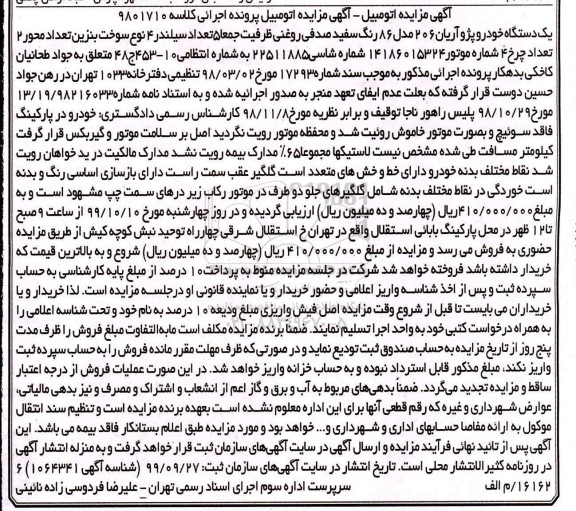 آگهی مزایده اتومبیل – آگهی مزایده اتومبیل پرونده اجرائی کلاسه ۹۸۰۱۷۱۰
یک دستگاه خودرو پژو آریان ۲۰۶ مدل ۸۶ رنگ سفید صدفی روغنی ظرفیت جمعا ۵ تعداد سیلندر ۴ نوع سوخت بنزین تعداد محور ۲
تعداد چرخ ۴ شماره موتور ۱۴۱۸۶۰۱۵۳۲۴ شماره شاسی ۲۲۵۱۱۸۸۵ به شماره انتظامی ۱۰-۴۵۳ج۴۸ متعلق به جواد طحانیان
کاخکی بدهکار پرونده اجرائی مذکور به موجب سند شماره ۱۷۲۹۳ مورخ ۹۸/۰۳/۰۲ تنظیمی دفترخانه ۱۰۳۳ تهران در رهن جواد
حسین دوست قرار گرفته که بعلت عدم ایفای تعهد منجر به صدور اجرائیه شده و به استناد نامه شماره ۱۳/۱۹/۹۸۲۱۶۰۳۳
مورخ ۹۸/۱۰/۲۹ پلیس راهور ناجا توقیف و برابر نظریه مورخ ۹۸/۱۱/۸ کارشناس رسمی دادگستری: خودرو در پارکینگ
فاقد سوئیچ و بصورت موتور خاموش روئیت شد و محفظه موتور رویت نگردید اصل بر سلامت موتور و گیربکس قرار گرفت
کیلومتر مسافت طی شده مشخص نیست لاستیکها مجموعا ۶۵٪ مدارک بیمه رویت نشد مدارک مالکیت در ید خواهان رویت
شد ونقاط مختلف بدنه خودرو دارای خط و خش های متعدد است گلگیر عقب سمت راست دارای بازسازی اساسی رنگ و بدنه
است خوردگی در نقاط مختلف بدنه شامل گلگیرهای جلو دو طرف در موتور رکاب زیر درهای سمت چپ مشهود است و به
مبلغ ۴۱۰/۰۰۰/۰۰۰ریال (چهارصد و ده میلیون ریال) ارزیابی گردیده و در روز چهارشنبه مورخ ۹۹/۱۰/۱۰ از ساعت ۹ صبح
تا ۱۲ ظهر در محل پارکینگ بابائی استقلال واقع در تهران خ استقلال شرقی چهارراه توحید نبش کوچه کیش از طریق مزایده
حضوری به فروش می رسد و مزایده از مبلغ ۴۱۰/۰۰۰/۰۰۰ ریال (چهارصد و ده میلیون ریال) شروع و به بالاترین قیمت که
خریدار داشته باشد فروخته خواهد شد شرکت در جلسه مزایده منوط به پرداخت ۱۰ درصد از مبلغ پایه کارشناسی به حساب
سپرده ثبت و پس از اخذ شناسه واریز اعلامی و حضور خریدار و یا نماینده قانونی او در جلسه مزایده است. لذا خریدار و یا
خریداران می بایست تا قبل از شروع وقت مزایده اصل فیش واریزی مبلغ ودیعه ۱۰ درصد به نام خود و تحت شناسه اعلامی را
به همراه درخواست کتبی خود به واحد اجرا تسلیم نمایند. ضمنا برنده مزایده مکلف است مابه‌التفاوت مبلغ فروش را ظرف مدت
پنج روز از تاریخ مزایده به حساب صندوق ثبت تودیع نماید و در صورتی که ظرف مهلت مقرر مانده فروش را به حساب سپرده ثبت
واریز نکند، مبلغ مذکور قابل استرداد نبوده و به حساب خزانه واریز خواهد شد. در این صورت عملیات فروش از درجه اعتبار
ساقط و مزایده تجدید می‌گردد. ضمناً بدهی‌های مربوط به آب و برق و گاز اعم از انشعاب و اشتراک و مصرف و نیز بدهی مالیاتی،
عوارض شهرداری و غیره که رقم قطعی آنها برای این اداره معلوم نشده است بعهده برنده مزایده است و تنظیم سند انتقال
موکول به ارائه مفاصا حسابهای اداری و شهرداری و... خواهد بود و مورد مزایده طبق اعلام بستانکار فاقد بیمه می باشد. این
آگهی پس از تائید نهائی فرآیند مزایده و ارسال آگهی در سایت آگهی‌های سازمان ثبت قرار خواهد گرفت و به منزله انتشار آگهی
در روزنامه کثیرالانتشار محلی است. تاریخ انتشار در سایت آگهی‌های سازمان ثبت: ۹۹/۰۹/۲۷ (شناسه آگهی ۱۰۶۴۳۴۱) ۶
۱۶۱۶۲/م الف سرپرست اداره سوم اجرای اسناد رسمی تهران – علیرضا فردوسی زاده نائینی